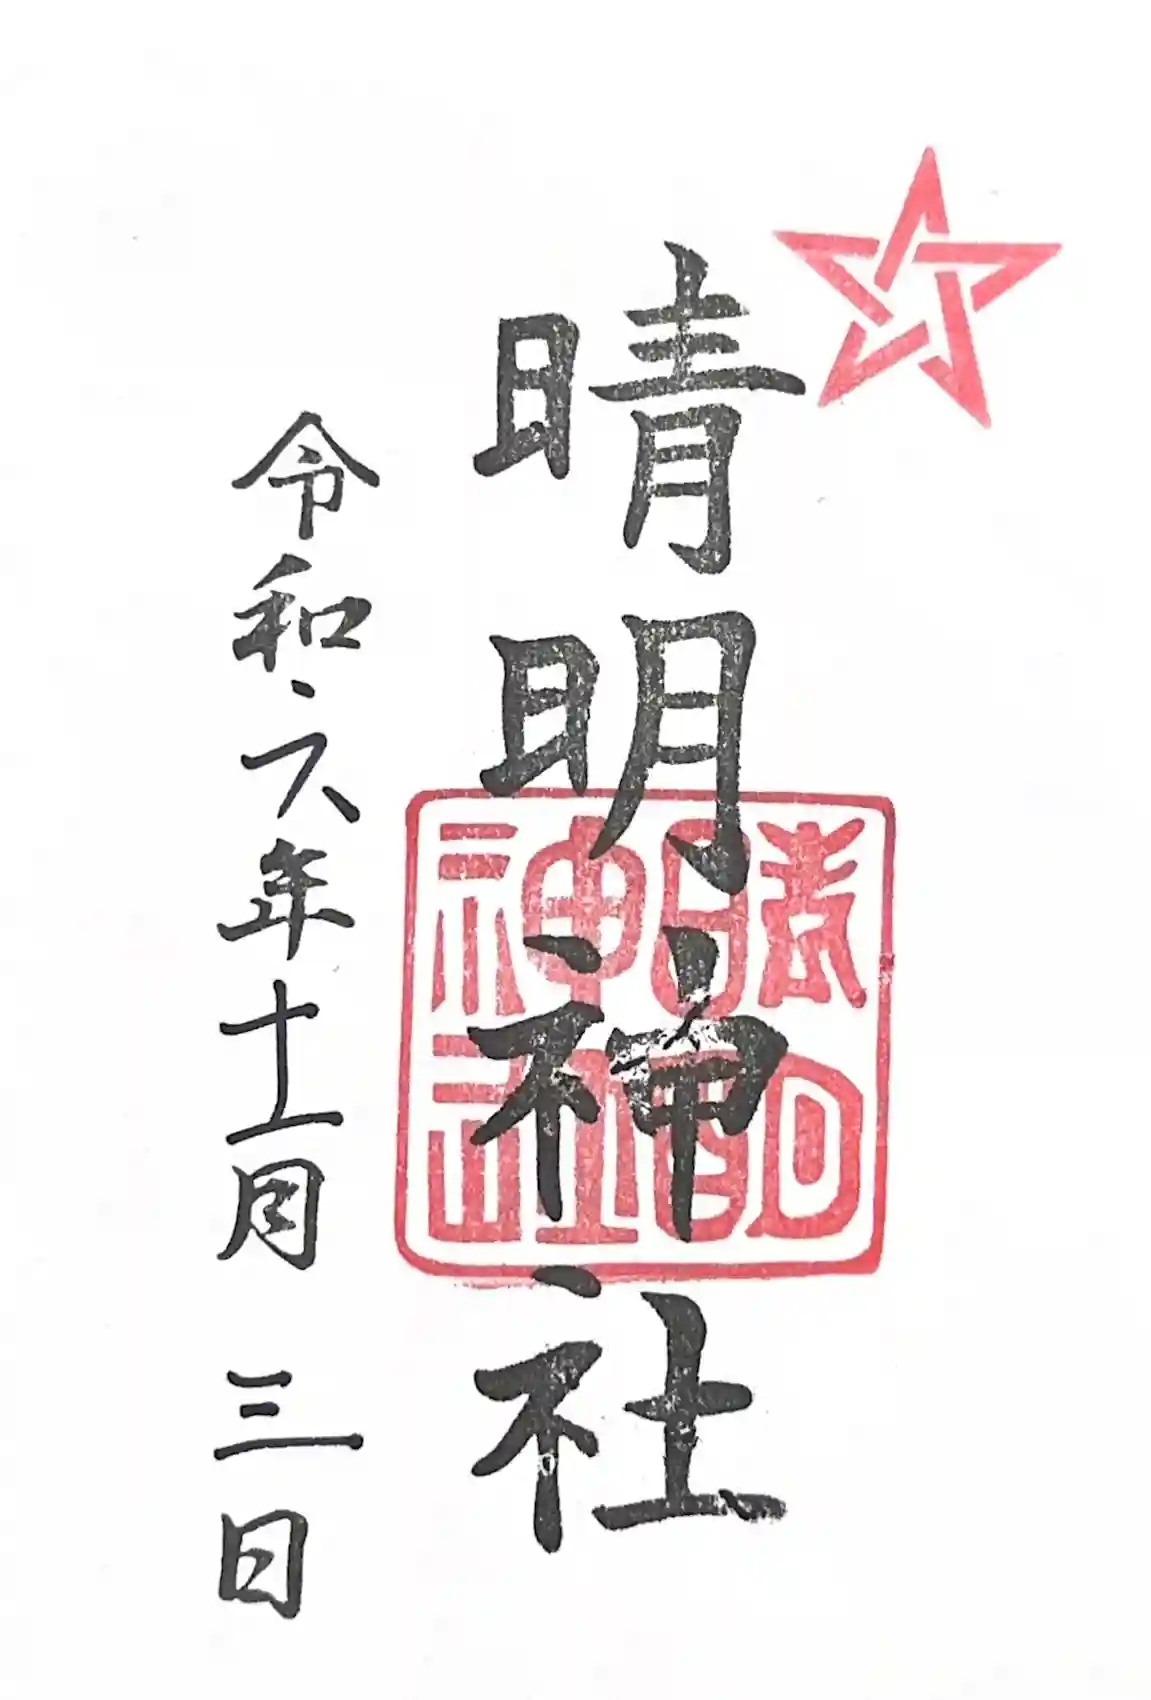 晴明神社
晴明
神社
令和六年十一月三日